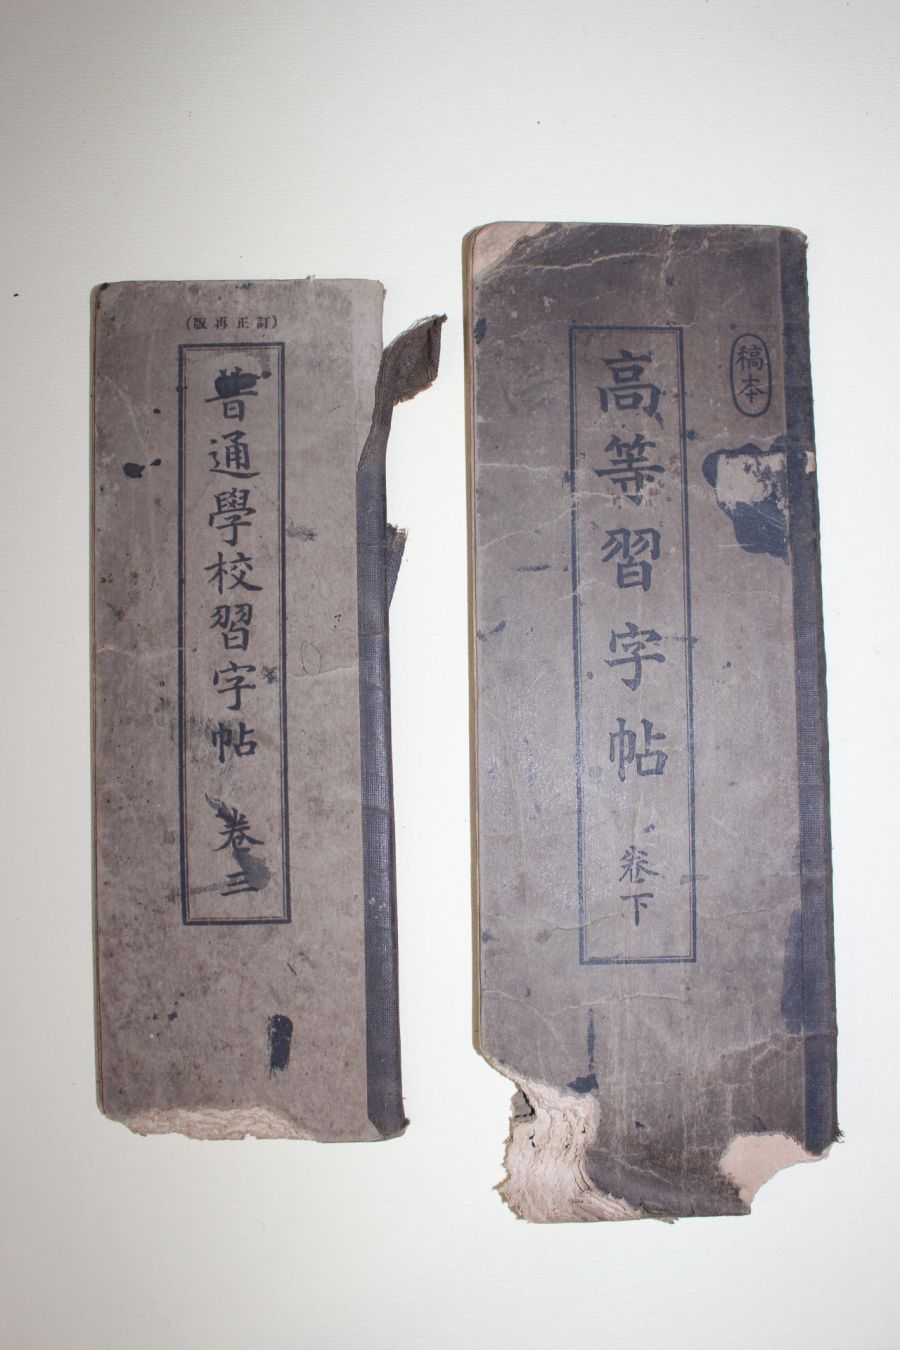 (訂正再版)
普通學校習字帖 卷三
稿本
高等習字帖 卷下